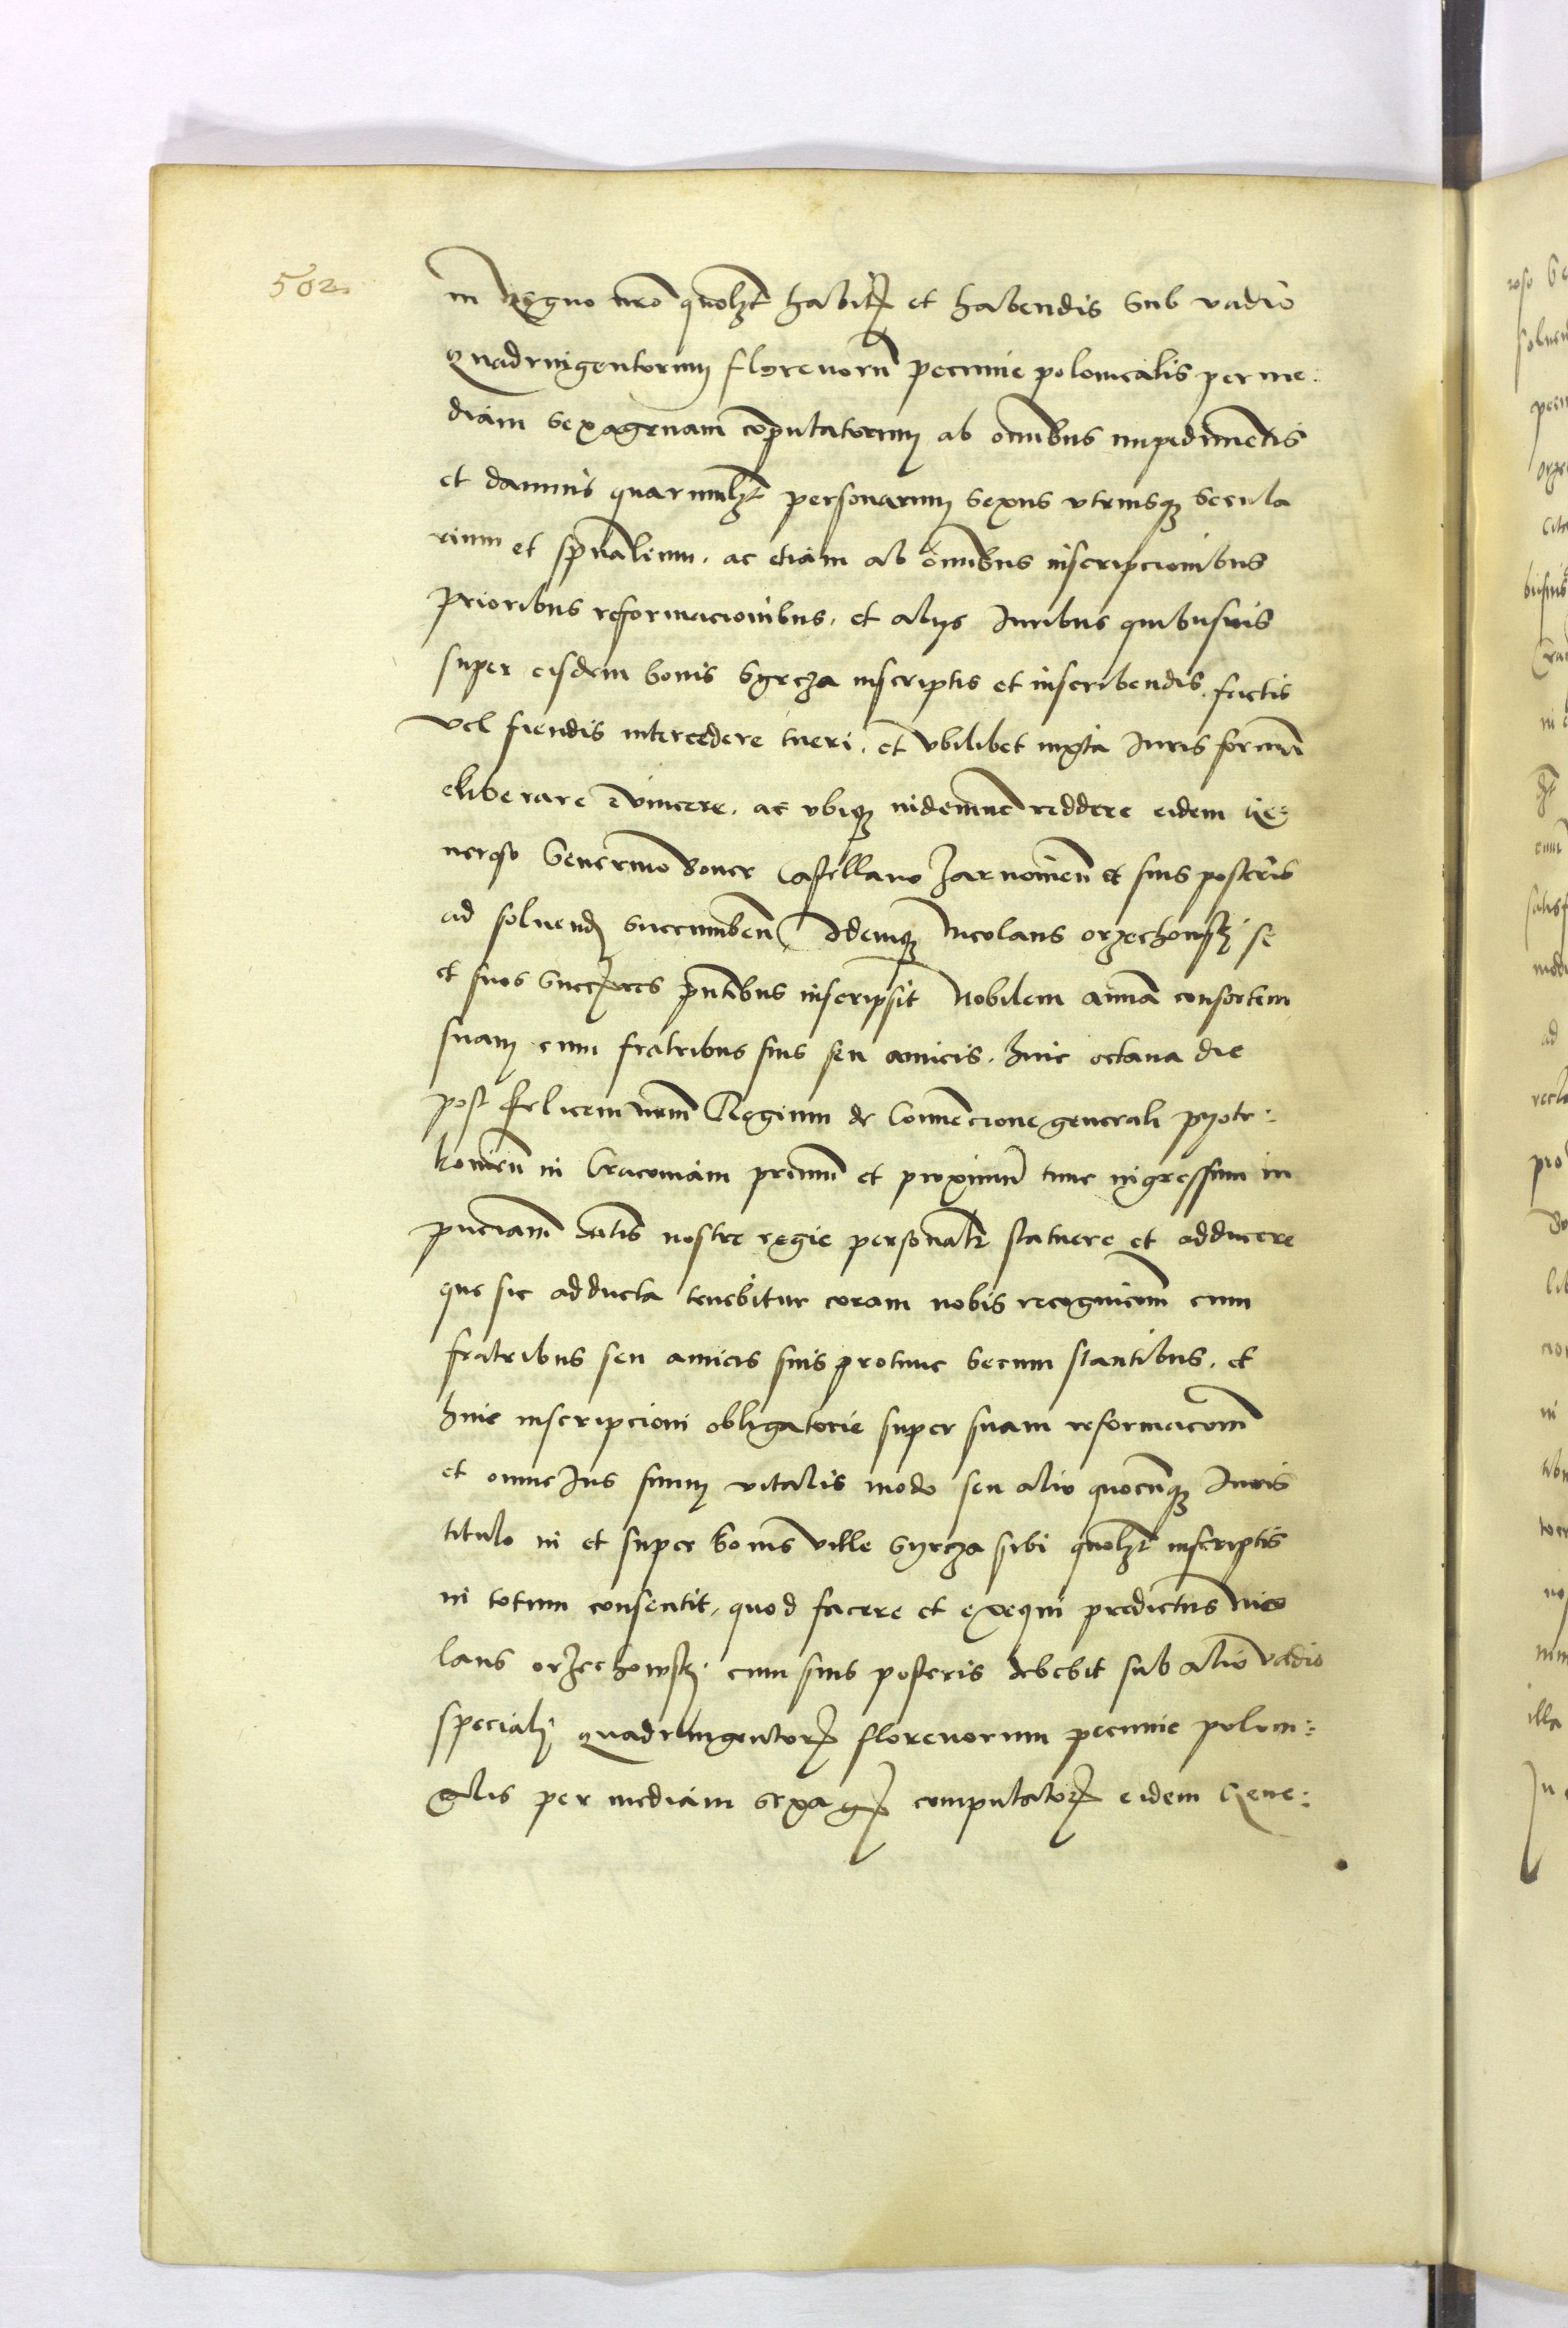 502
in Regno nro quolzt habitz et habendis Sub vadio
Quadringentorum florenorum pecunie polonicalis per me:
diam Sexagenam computatorum ab omnibus impedimentis
et damnis quarumlzt personarum Sexus vtriusqz Secula
rium et spualium. ac etiam ab omnibus inscripcionibus
prioribus reformacionibus. et alys Iuribus quibusuis
super eisdem bonis Gyrcza inscriptis et inscribendis, factis
vel fiendis intercedere tueri. et vbilibet iuxta Iuris formam
eliberare Euincere. ac vbiqz indemne reddere eidem Ge:
neroso Seuerino Boner Castellano Zarnowien et suis posteris
ad soluend Succumben Idemqz Nicolaus orzechowsky se
et suos Successores pntibus inscripsit Nobilem annam consortem
suam cum fratribus suis seu amicis. hinc octaua die
post felicem nrm Regium de Conuencione generali pyotr:
kowien in Cracouiam primum et proximum tunc ingressum in
pnciam Mtis nostre regie personalr statuere et adducere
que sic adducta tenebitur coram nobis recognicom cum
fratribus seu amicis suis protunc Secum stantibus. et
huic inscripcioni obligatorie super suam reformacom
et omne Ius suum vitalis modo seu alio quocunqz Iuris
titulo in et super bonis ville Gyrcza sibi quolzt inscriptis
in totum consentit. quod facere et exequi predictus Nico
laus orzechowsky cum suis posteris debebit sub alio vadio
speciali Quadringentorz florenorum pecunie poloni:
calis per mediam Sexagz computatorz eidem Gene: